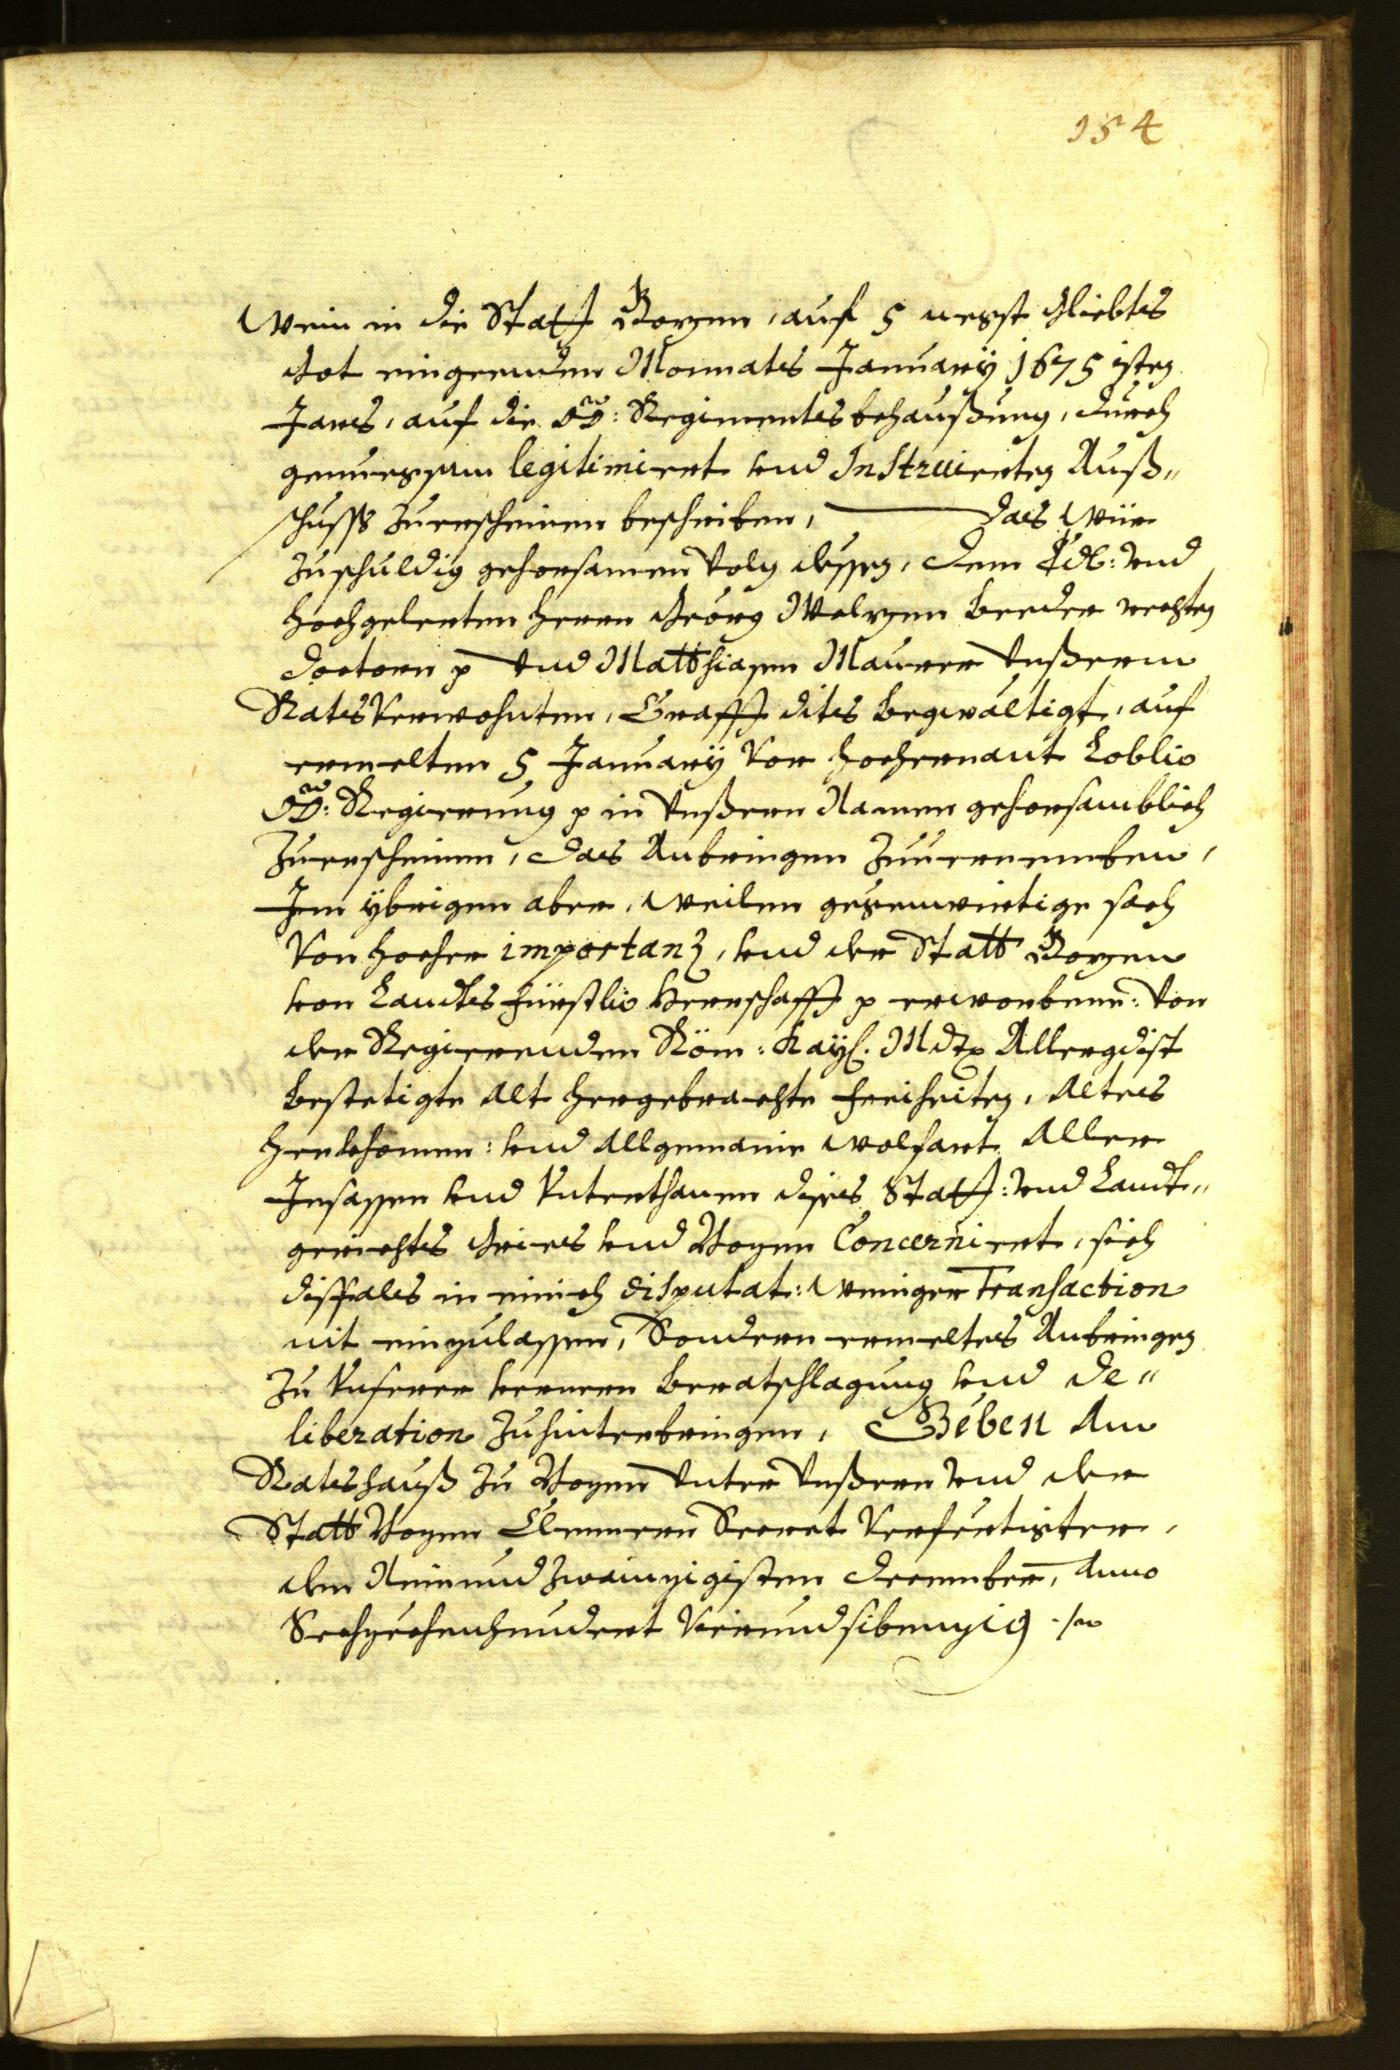 154
Wein in die Statt Bozen, auf 5 negst geliebts
Got eingeenden Monnats January 1675 isten
Jares, auf die OÖ: Regimentsbehaußung, durch
genuegsam legitimiert und Instruierten Auß„
schuss zuerscheinen beschriben, das wür
zuschuldig gehorsamen volg dessen, dem Edl: und
hochgelerten herrn Georg Welzen beeder rechten
doctorn p und Matthiasen Maurer unßerm
Rats Verwohnten, Crafft dits begwaltigt, auf
ermelten 5 January vor hochernant Loblic
OÖ: Regierung p in unßern Namen gehorsamblich
zuerscheinen, das Anbringen zuuernemben,
Im ybrigen aber, weilen gegenwirtige sach
von hocher importanz, und der Statt Bozen
von Landtsfürstlic herrschafft p erworbene: von
der Regierenden Röm: Kayß. Mdtp Allergdist
bestetigte alt hergebrachte freiheiten, altes
herkhomen: und allgemaine wolfart aller
Insassen und Unterthanen dises Statt: und Landt„
gerichts Gries und Bozen Concerniert, sich
dissfals in einich disputat: weniger Transaction
nit einzulassen, Sondern ermeltes Anbringen
zu unserer ferrern beratschlagung und de„
liberation zuhinterbringen, Geben Am
Ratshauß zu Bozen unter unßern und der
Statt Bozen Clennern Secret Verfertigter,
den Neinundzwainzigisten december, Anno
Sechzechenhundert Vierundsibenzig